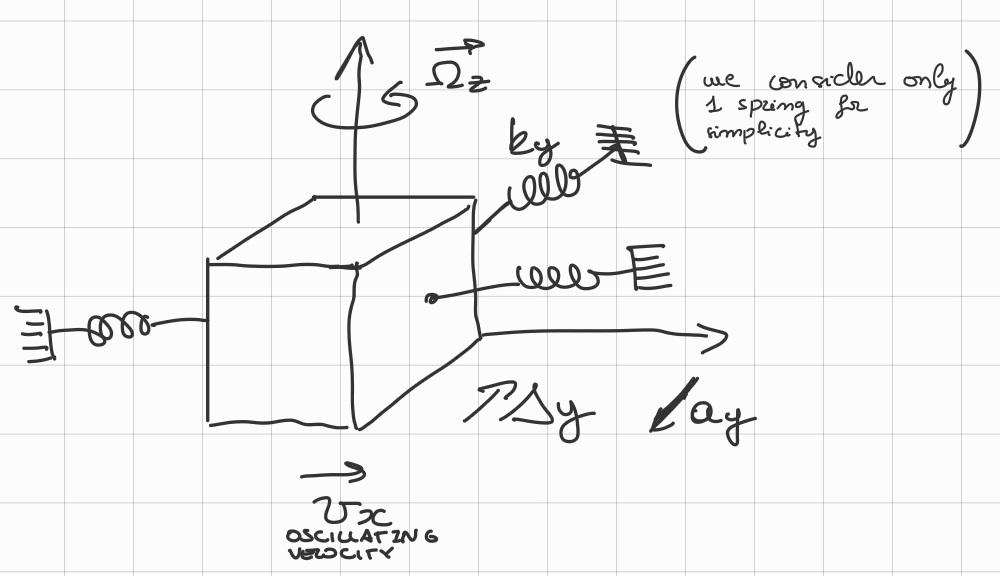 Ωz
(we consider only
1 spring for
simplicity)
ky
Δy
ay
vx
OSCILLATING
VELOCITY